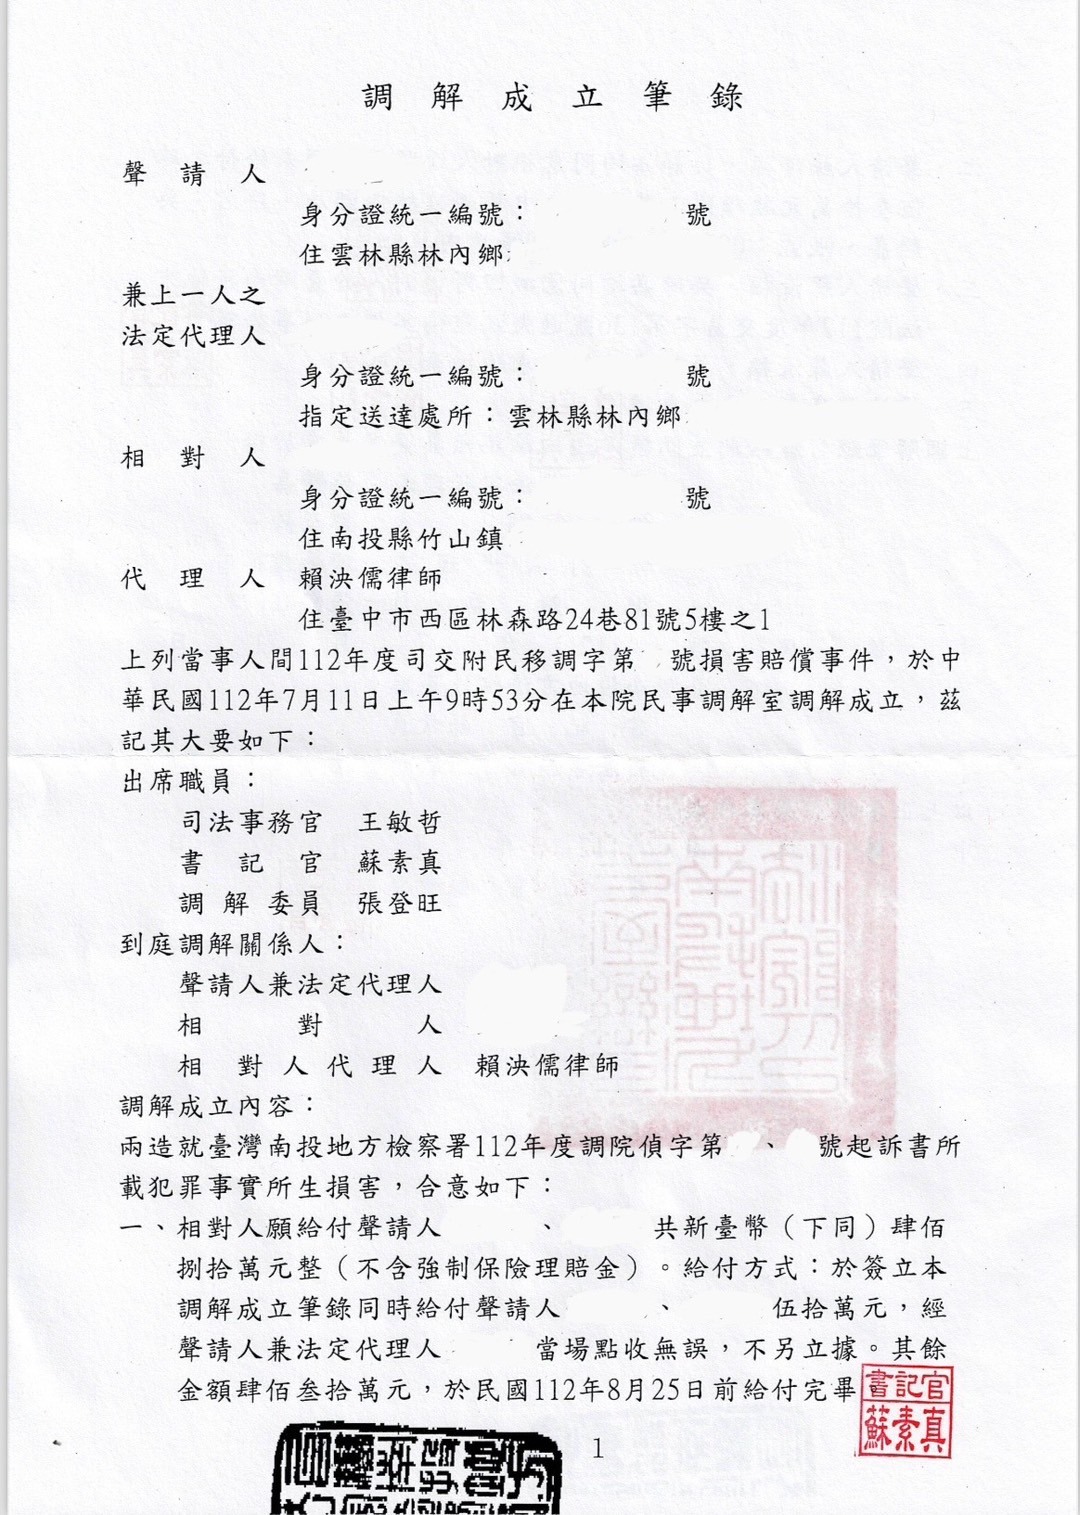 調解成立筆錄
聲請人
身分證統一編號： 號
住雲林縣林內鄉
兼上一人之
法定代理人
身分證統一編號： 號
指定送達處所：雲林縣林內鄉
相對人
身分證統一編號： 號
住南投縣竹山鎮
代理人 賴泱儒律師
住臺中市西區林森路24巷81號5樓之1
上列當事人間112年度司交附民移調字第 號損害賠償事件，於中
華民國112年7月11日上午9時53分在本院民事調解室調解成立，茲
記其大要如下：
出席職員：
司法事務官 王敏哲
書記官 蘇素真
調解委員 張登旺
到庭調解關係人：
聲請人兼法定代理人
相對人
相對人代理人 賴泱儒律師
調解成立內容：
兩造就臺灣南投地方檢察署112年度調院偵字第 、 號起訴書所
載犯罪事實所生損害，合意如下：
一、相對人願給付聲請人 、 共新臺幣（下同）肆佰
捌拾萬元整（不含強制保險理賠金）。給付方式：於簽立本
調解成立筆錄同時給付聲請人 、 伍拾萬元，經
聲請人兼法定代理人 當場點收無誤，不另立據。其餘
金額肆佰叁拾萬元，於民國112年8月25日前給付完畢
書記官
蘇素真
1